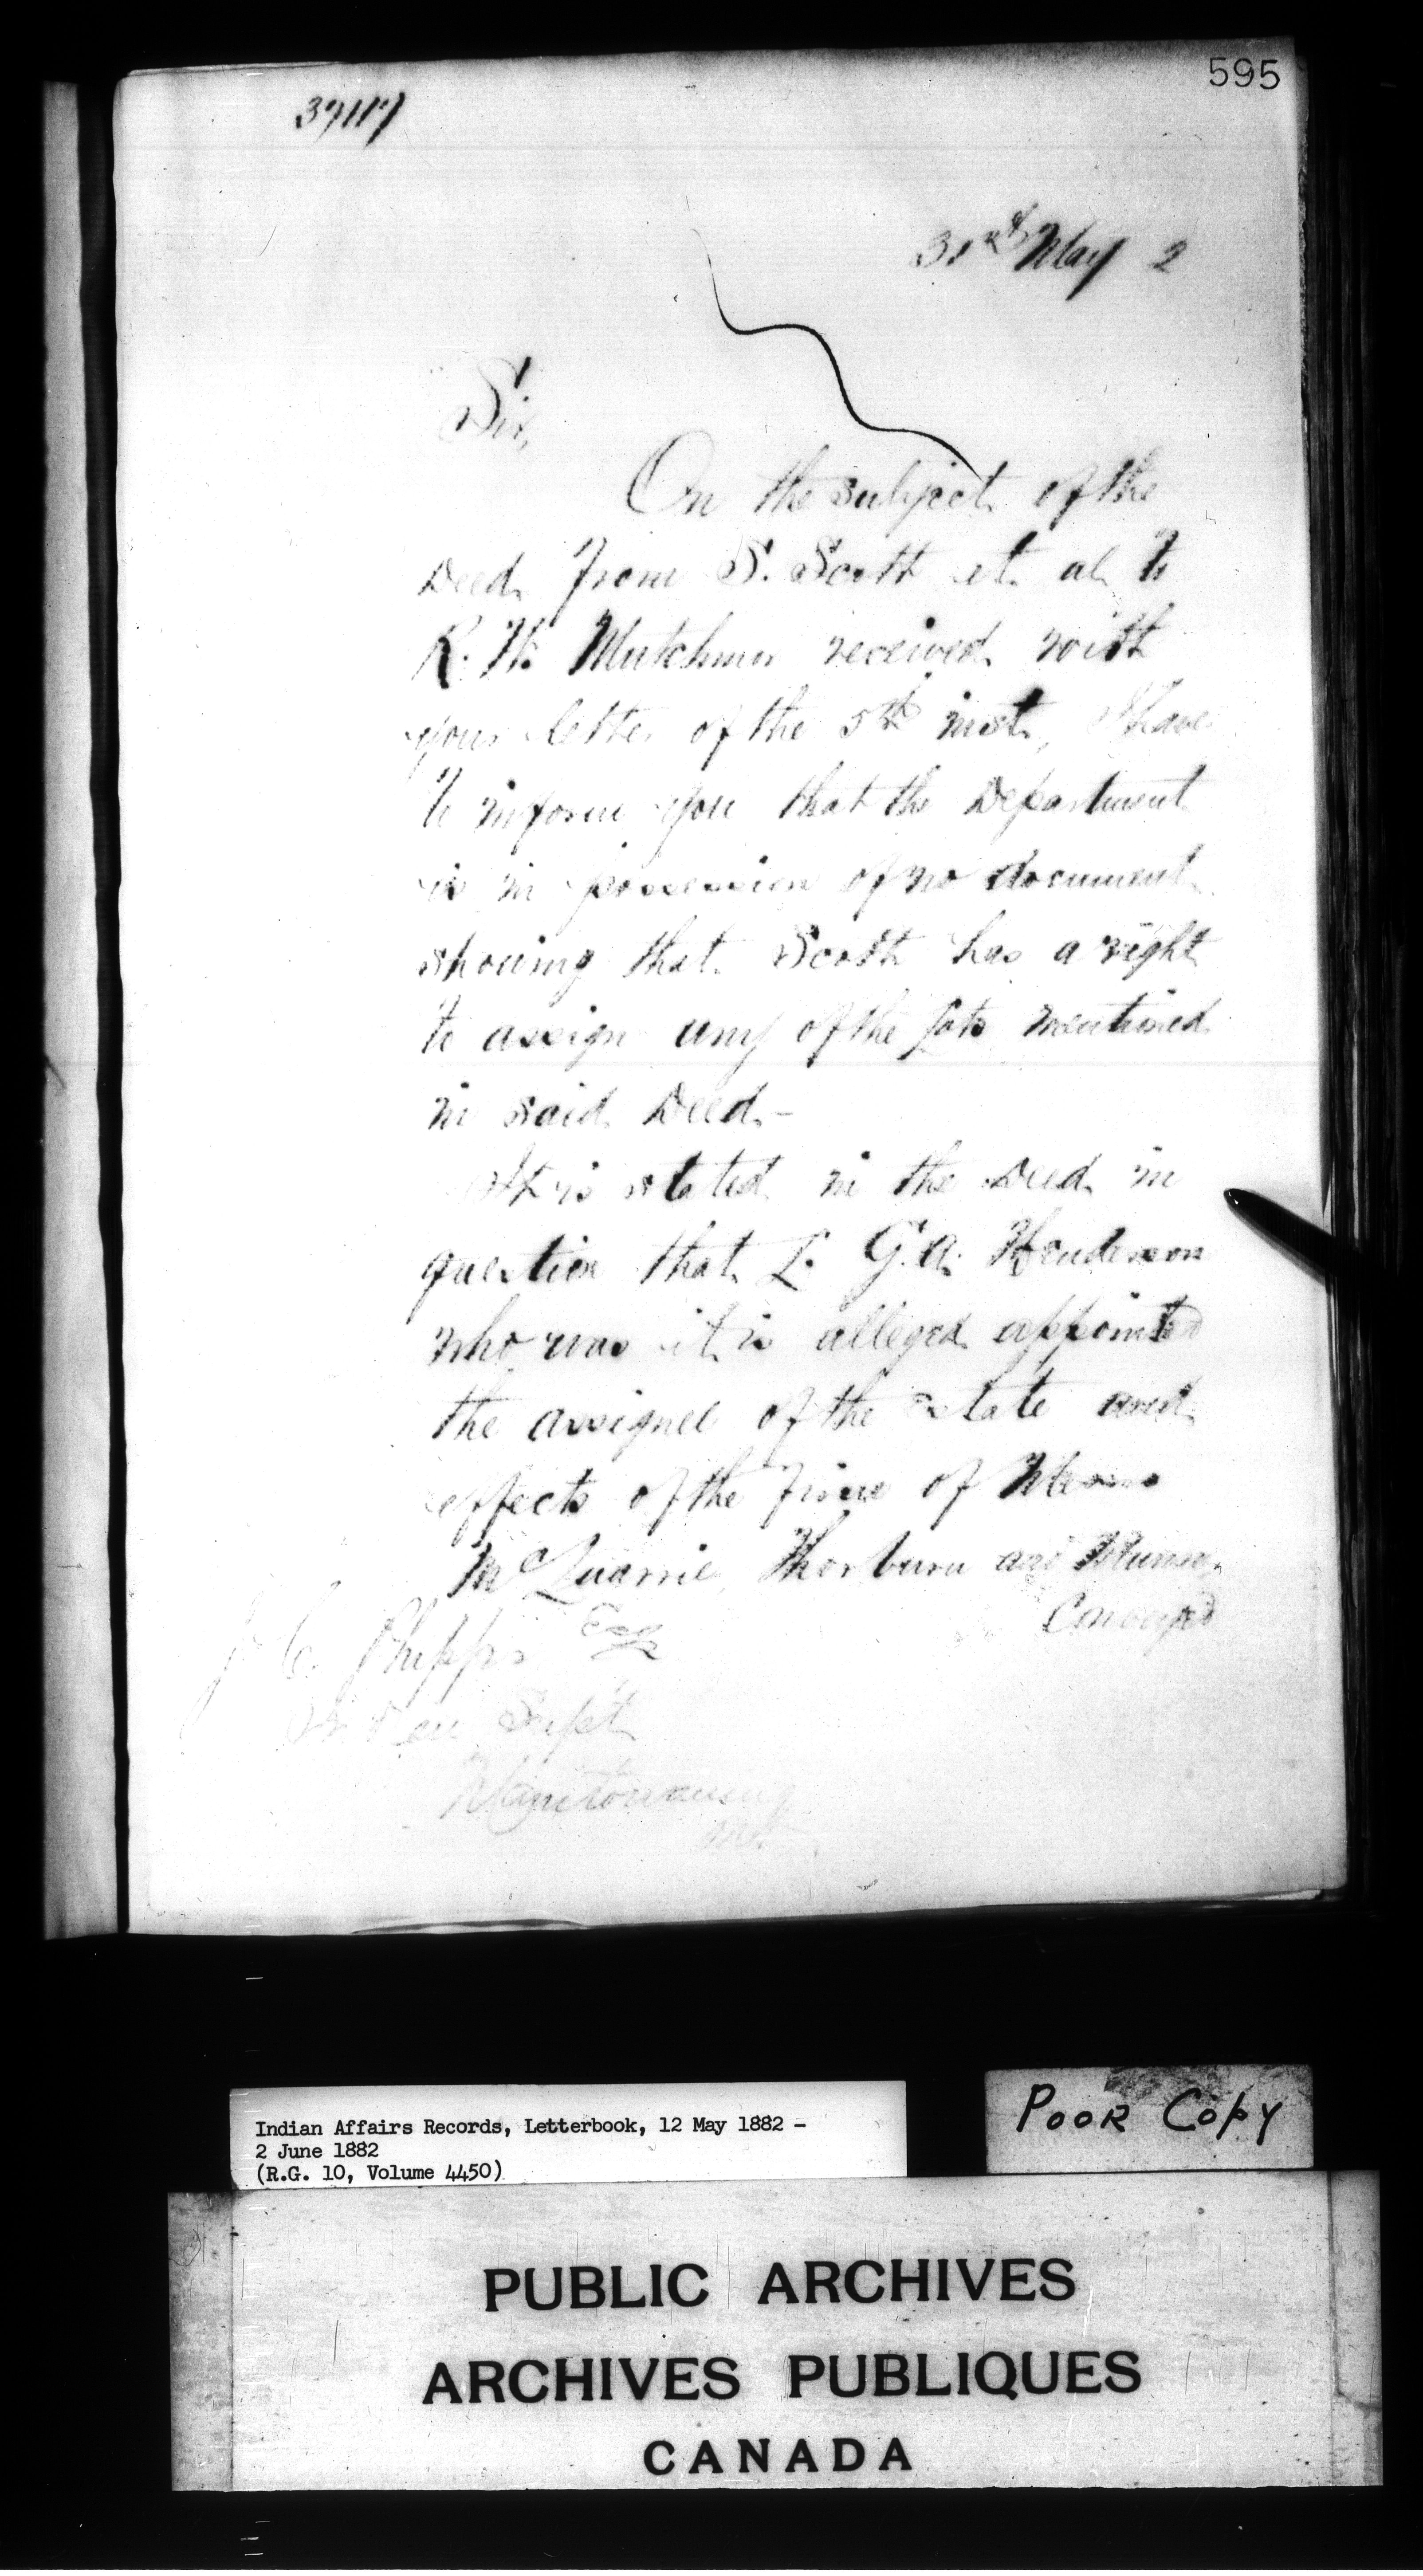 595
37117
31st May 2
Sir,
On the subject of the
Deed from S. Scott et al to
R. H. Mutchmor received with
your letter of the 5th inst, I have
to inform you that the Department
is in possession of no document
showing that Scott has a right
to assign any of the lots mentioned
in said Deed.-
It is stated in the Deed in
question that L. G. A. Henderson
who was it is alleged appointed
the assignee of the Estate and
effects of the firm of Messrs
McQuarrie, Thorburn and Munro,
Conveyed
J. C. Phipps Esq
Indian Supt
Manitowaning
Ont
Indian Affairs Records, Letterbook, 12 May 1882 -
2 June 1882
(R.G. 10, Volume 4450)
POOR COPY
PUBLIC ARCHIVES
ARCHIVES PUBLIQUES
CANADA